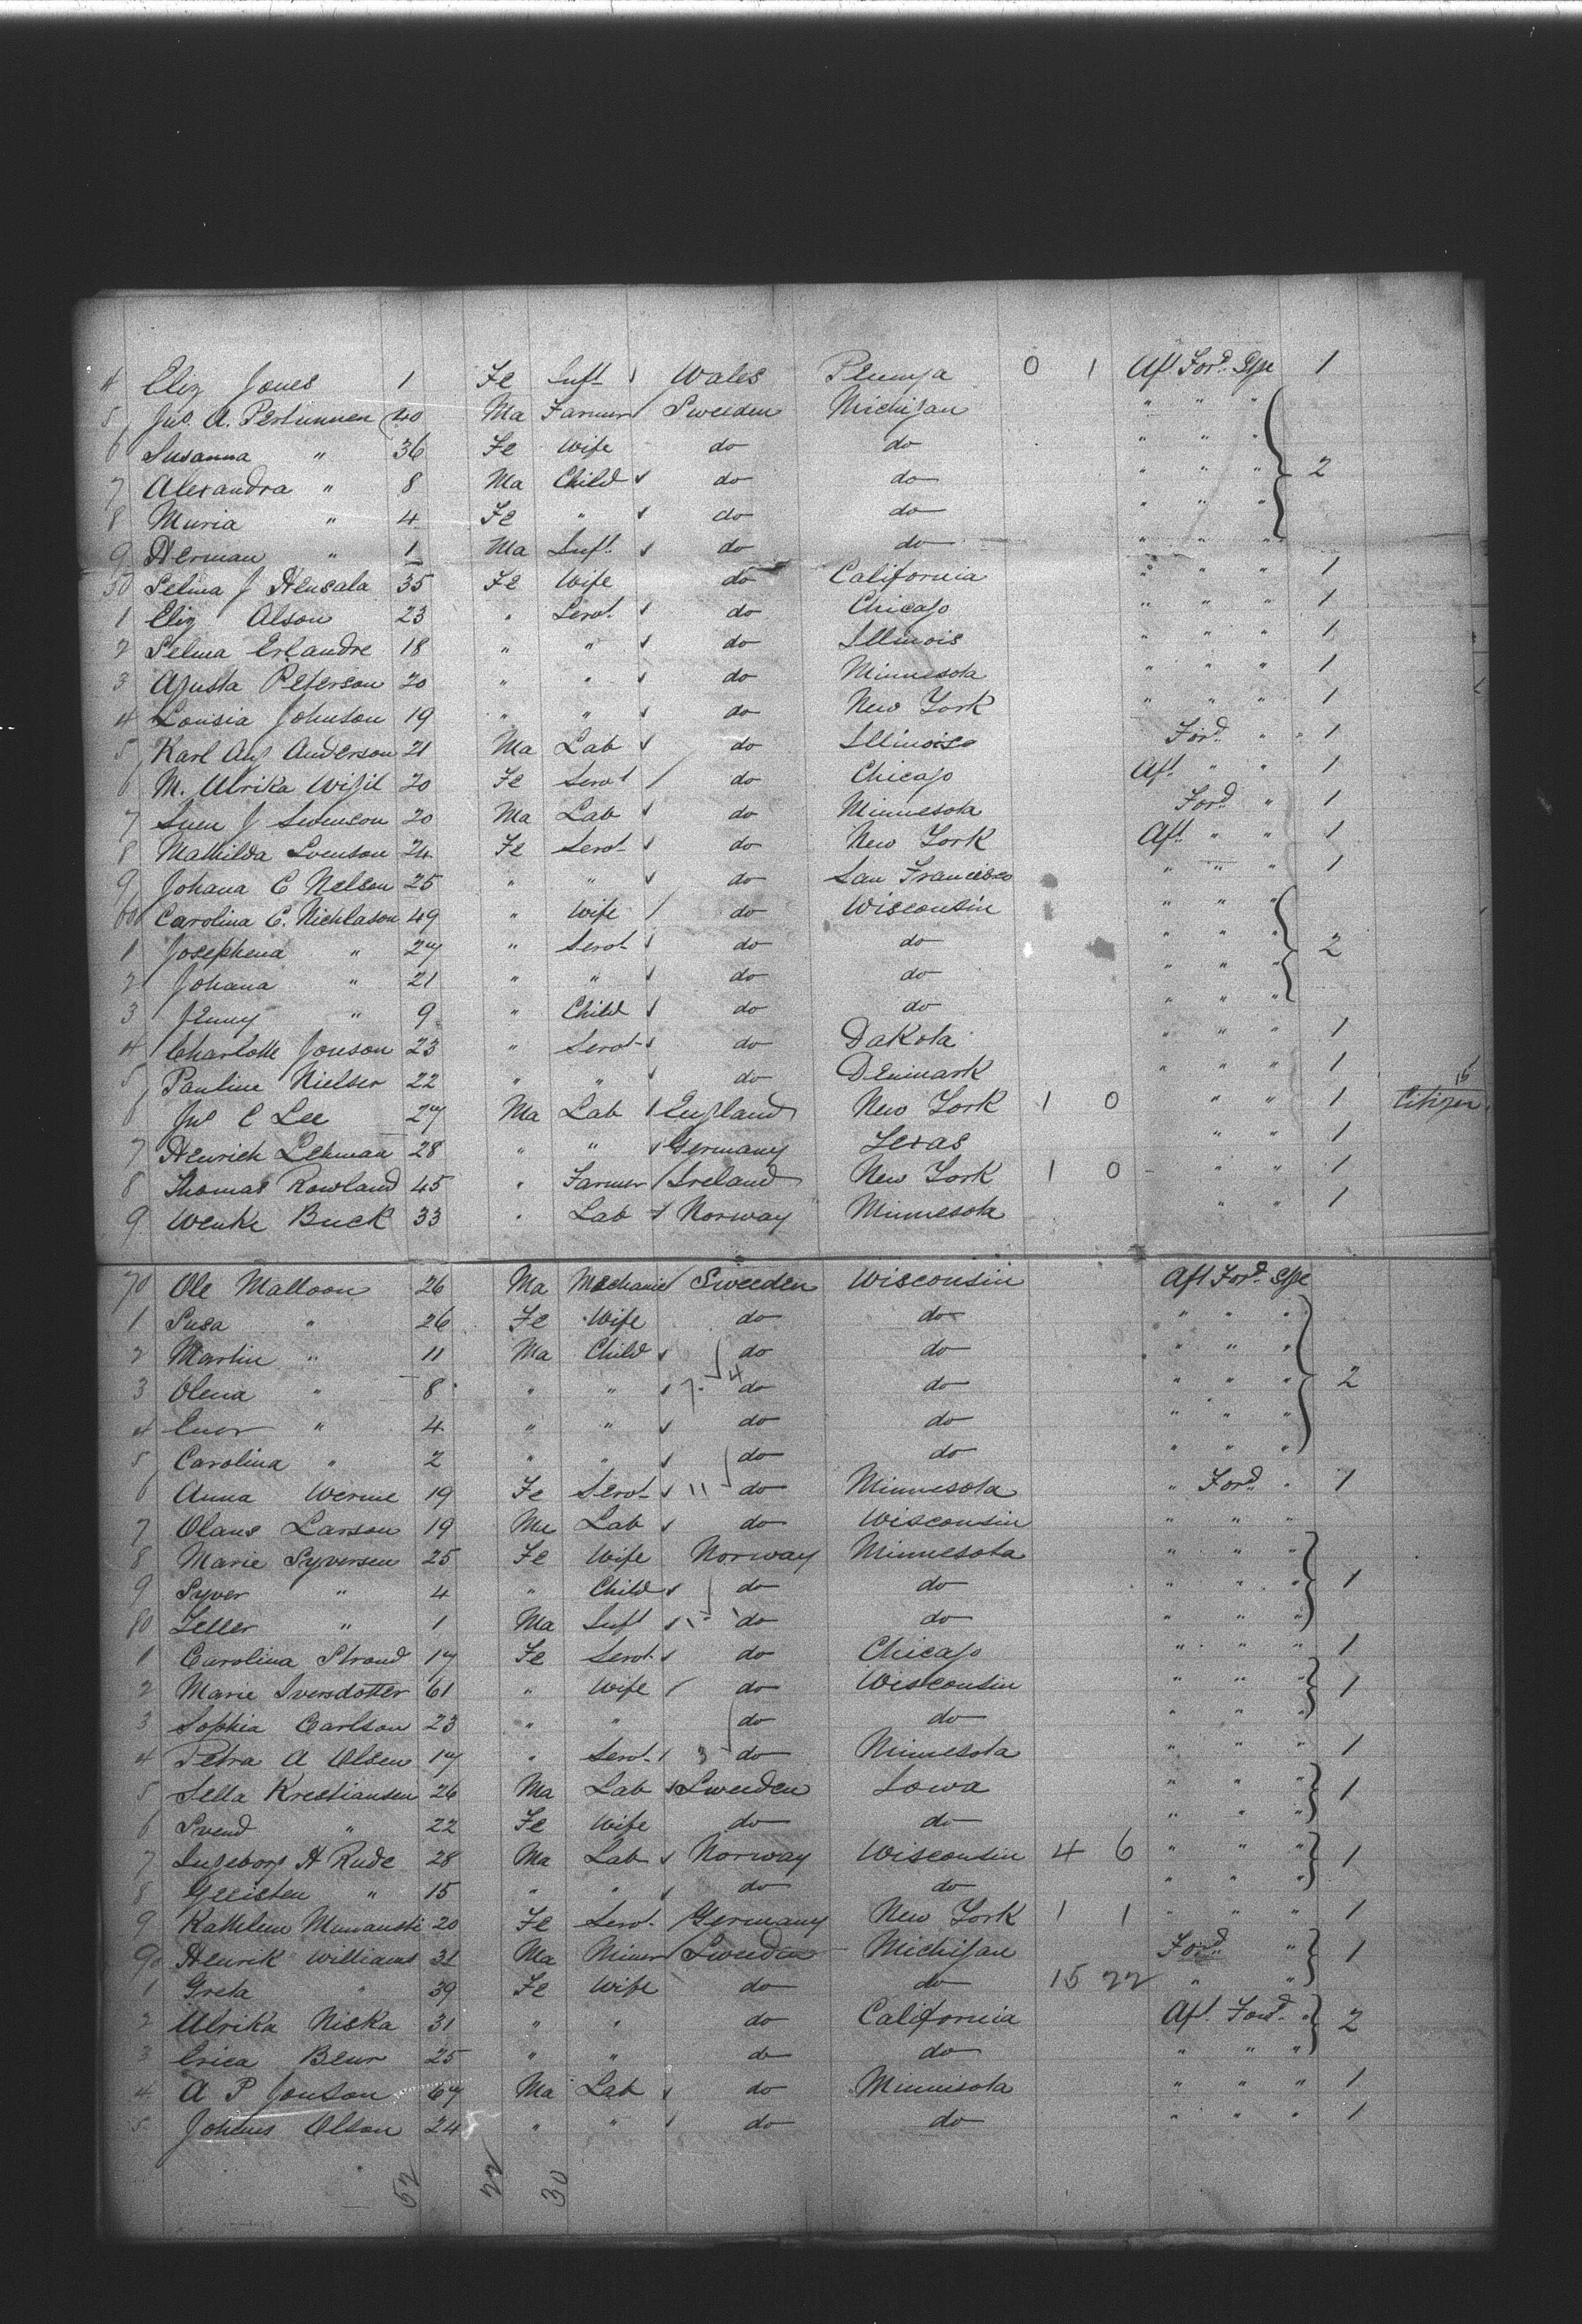 4 Eliz Jones 1 Fe Inft Wales 0 1 Aft Ford Stge 1
5 Jno. A. Pertunnen 40 Ma Farmer Sweeden Michigan " " "
6 Susanna " 36 Fe Wife do do " " "
7 Alexandra " 8 Ma Child do do " " " 2
8 Muria " 4 Fe " do do " " "
9 Herman " 1 Ma Inft do do " " "
50 Selma J Hensala 35 Fe Wife do California " " " 1
1 Eliz Alson 23 " Servt do Chicago " " " 1
2 Selma Erlandre 18 " " do Illinois " " " 1
3 Agusta Peterson 20 " " do Minnesota " " " 1
4 Lousia Johnson 19 " " do New York " " " 1
5 Karl Aug Anderson 21 Ma Lab do Illinois Ford " " 1
6 M. Ulrika Wigil 20 Fe Servt do Chicago Aft " " 1
7 Sven J Swenson 20 Ma Lab do Minnesota Ford " 1
8 Mathilda Svenson 24 Fe Servt do New York Aft " " 1
9 Johana C Nelson 25 " " do San Francisco " " " 1
60 Carolina C. Nicklason 49 " Wife do Wisconsin " " "
1 Josephena " 27 " Servt do do " " " 2
2 Johana " 21 " " do do " " "
3 Jenny " 9 " Child do do " " "
4 Charlotte Jonson 23 " Servt do Dakota " " " 1
5 Pauline Nielser 22 " " do Denmark " " " 1
6 Jno C Lee 27 Ma Lab England New York 1 0 " " 1 Citizen
7 Henrich Lehman 28 " " Germany Texas " " 1
8 Thomas Rowland 45 " Farmer Ireland New York 1 0 " " 1
9 Wenke Buck 33 " Lab Norway Minnesota " " 1
70 Ole Malloon 26 Ma Mechanic Sweeden Wisconsin Aft Ford Stge
1 Susa " 26 Fe Wife do do " "
2 Martin " 11 Ma Child do do " " "
3 Olena " 8 " " 4 do do " " " 2
4 " 4 " " do do " " "
5 Carolina " 2 " " do do " " "
6 Anna Werme 19 Fe Servt 11 do Minnesota " Ford " 1
7 Olaus Larson 19 Ma Lab do Wisconsin " " "
8 Marie Syversen 25 Fe Wife Norway Minnesota " " "
9 Syver " 4 " Child do do " " " 1
80 Zeller " 1 Ma Inft do do " " "
1 Carolina Strand 17 Fe Servt do Chicago " " " 1
2 Marie Iversdotter 61 " Wife do Wisconsin " " " 1
3 Sophia Carlson 23 " " do do " " "
4 Petra A Olsen 17 " Servt 3 do Minnesota " " " 1
5 Sella Krestiansen 26 Ma Lab Sweeden Iowa " " " 1
6 Svend " 22 Fe Wife do do " " "
7 Ingeborg H Rude 28 Ma Lab Norway Wisconsin 4 6 " " " 1
8 " 15 " " do do " " "
9 Kathleen 20 Fe Servt Germany New York 1 1 " " " 1
90 Henrik Williams 31 Ma Miner Sweeden Michigan Ford " 1
1 Greta " 39 Fe Wife do do 15 22 " "
2 Ulrika Niska 31 " " do California Aft Ford " 2
3 Erica Beur 25 " " do do " " "
4 A P Jonson 67 Ma Lab do Minnisota " " " 1
5 Johnes Olson 24 " " do do " " " 1
52 22 30